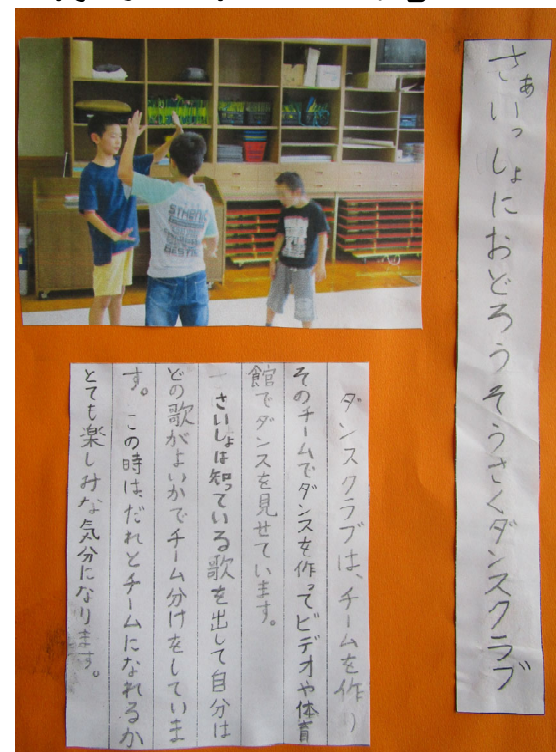 さぁいっしょにおどろうそうさくダンスクラブ
ダンスクラブは、チームを作り
そのチームでダンスを作ってビデオや体育
館でダンスを見せています。
さいしょは知っている歌を出して自分は
どの歌がよいかでチーム分けをしていま
す。この時は、だれとチームになれるか
とても楽しみな気分になります。